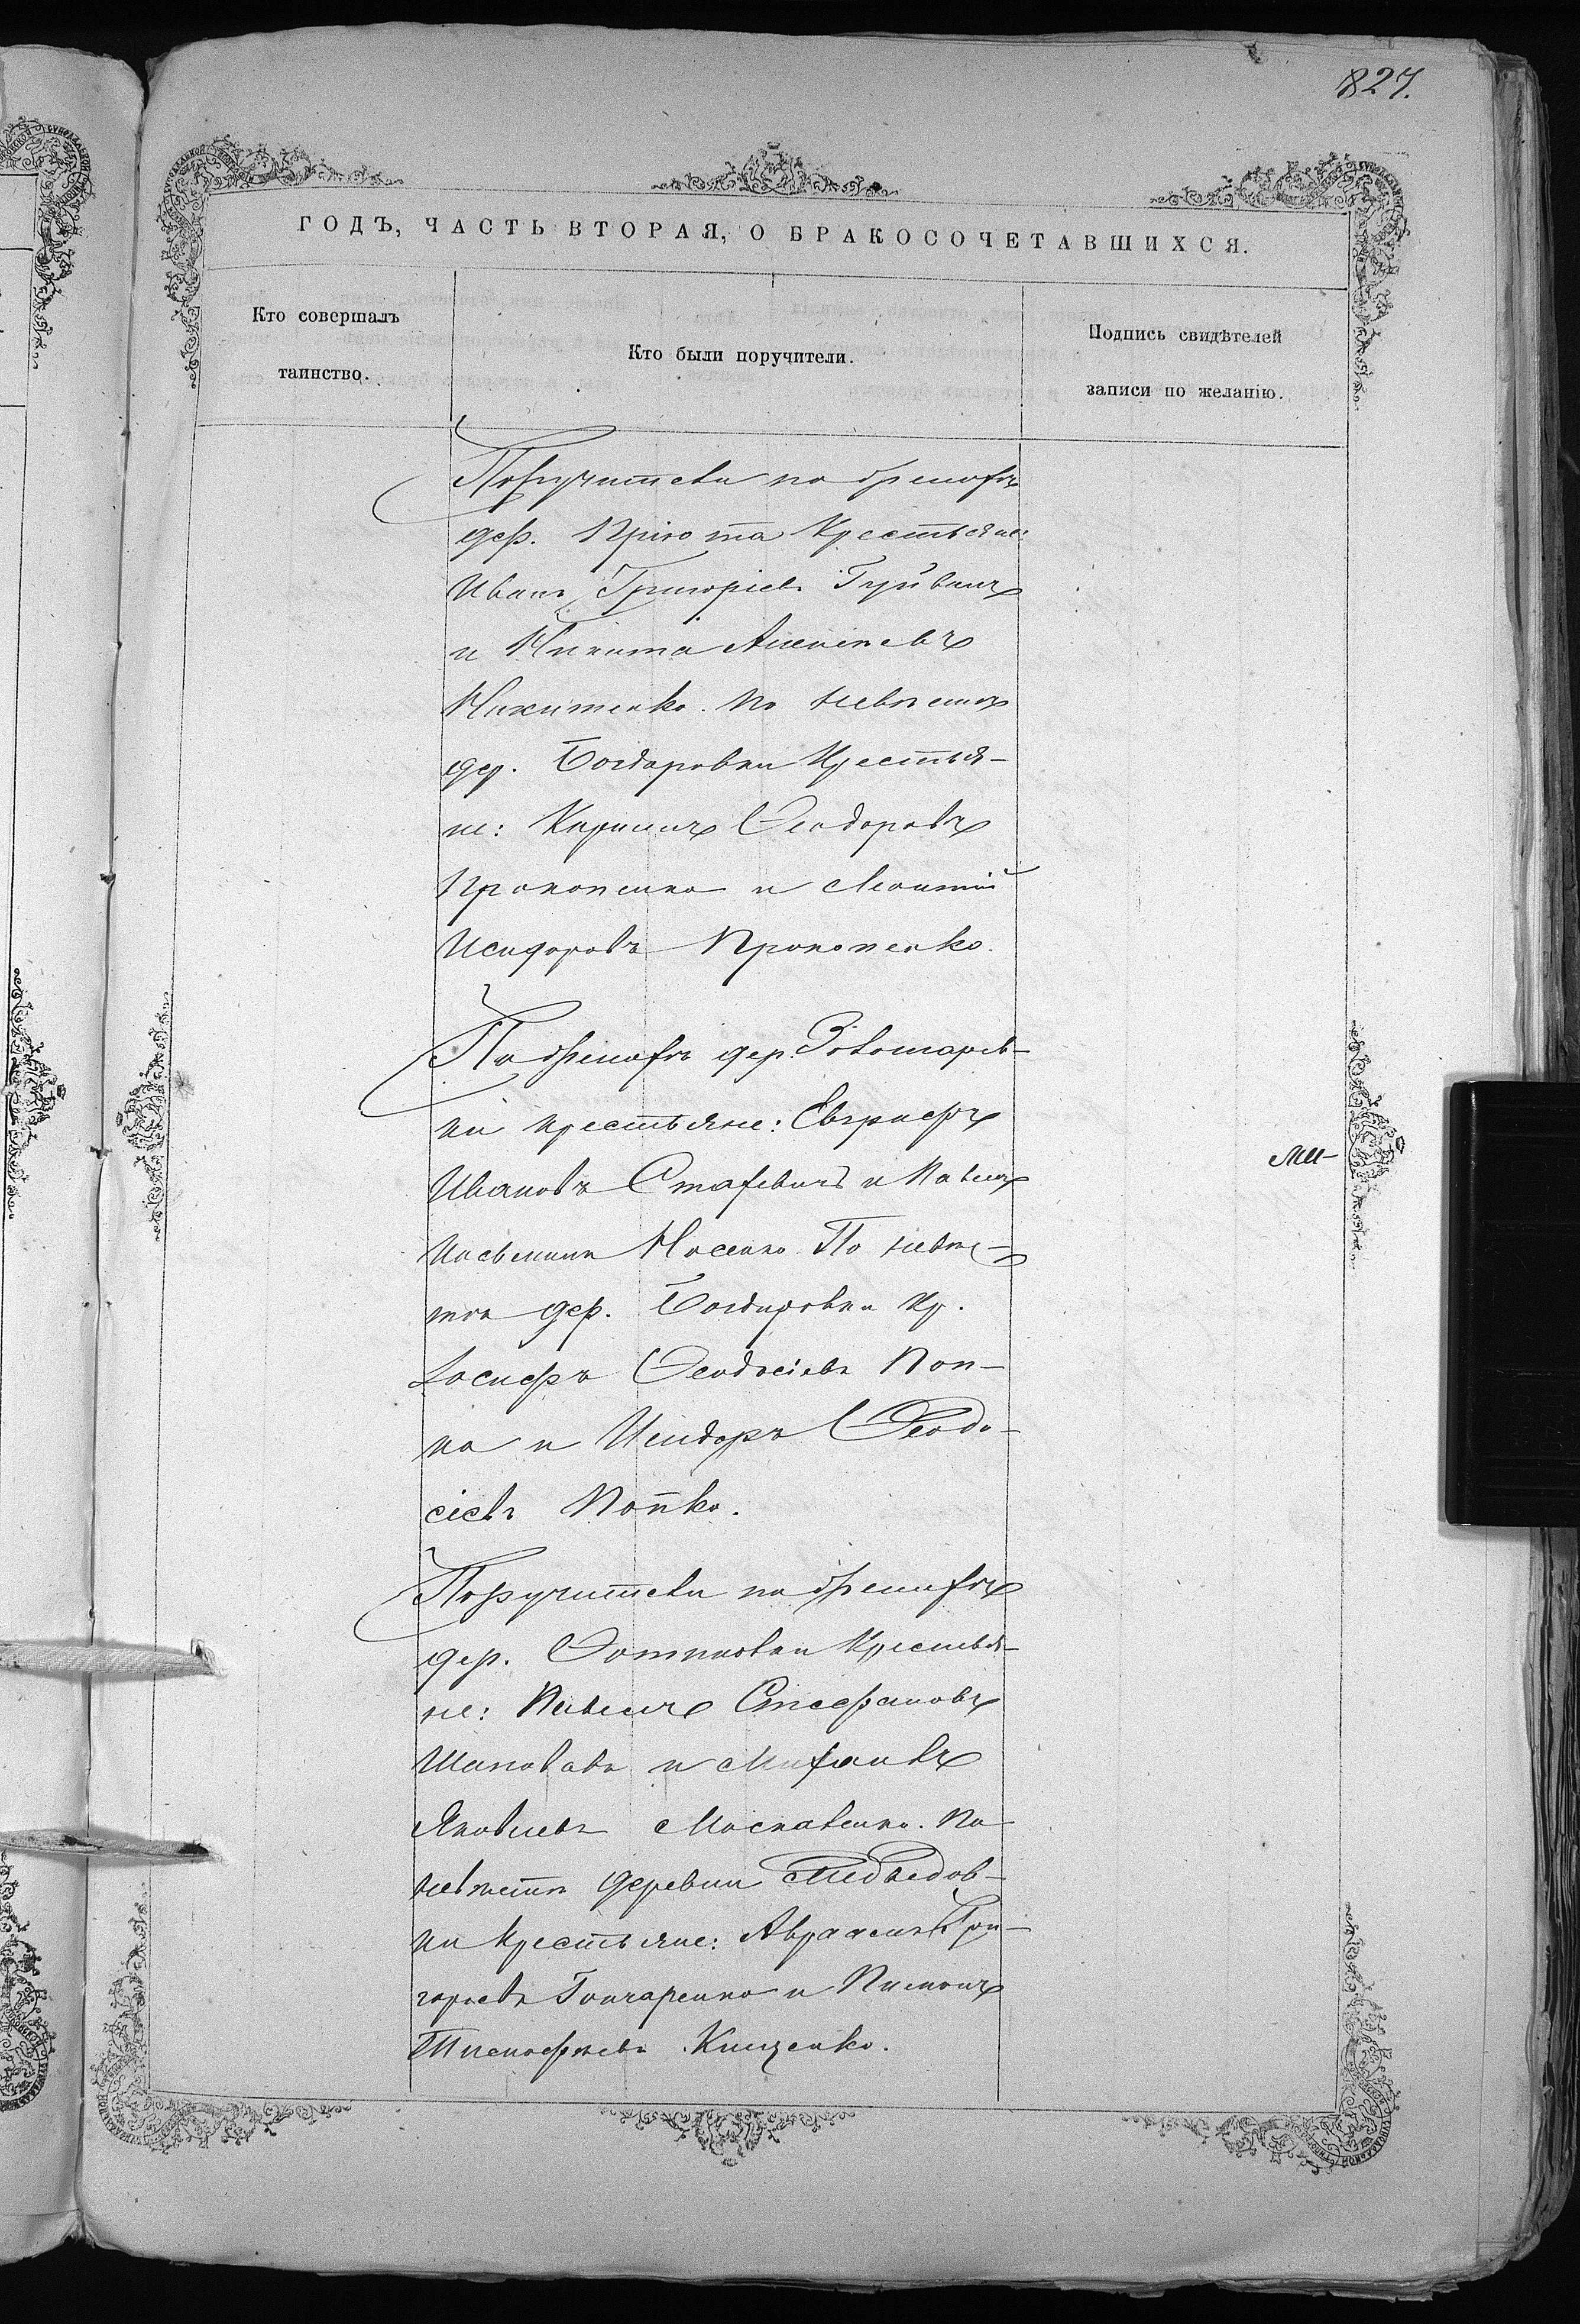 827.
ГОДЪ, ЧАСТЬ ВТОРАЯ, О БРАКОСОЧЕТАВШИХСЯ.
Кто совершалъ
таинство.
Кто были поручители.
Подпись свидѣтелей
записи по желанію.
Поручители по женихѣ
дер. Пріюта Крестьяне:
Иванъ Григоріевъ
и Никита
Никитенко. По невѣстѣ
дер. Бондаровки Крестья-
не: Кириллъ Ѳеодоровъ
Прокопенко и Леонтій
Исидоровъ Прокопенко.
По женихѣ дер. Золотарев-
ки крестьяне:
Ивановъ и Павелъ
Носенко По невѣс-
тѣ дер. Бондаровки Кр.
Іосифъ Ѳеодосіевъ Поп-
ко и Исидоръ Ѳеодо-
сіевъ Попко.
Поручители по женихѣ
дер. Сотниковки Крестья-
не: Павелъ Стефановъ
Шаповалъ и Михаилъ
Яковлевъ Москаленко. По
невѣстѣ деревни Медведов-
ки Крестьяне: Авраамъ Гри-
горьевъ Гончаренко и Пименъ
Тимофѣевъ Кищенко.